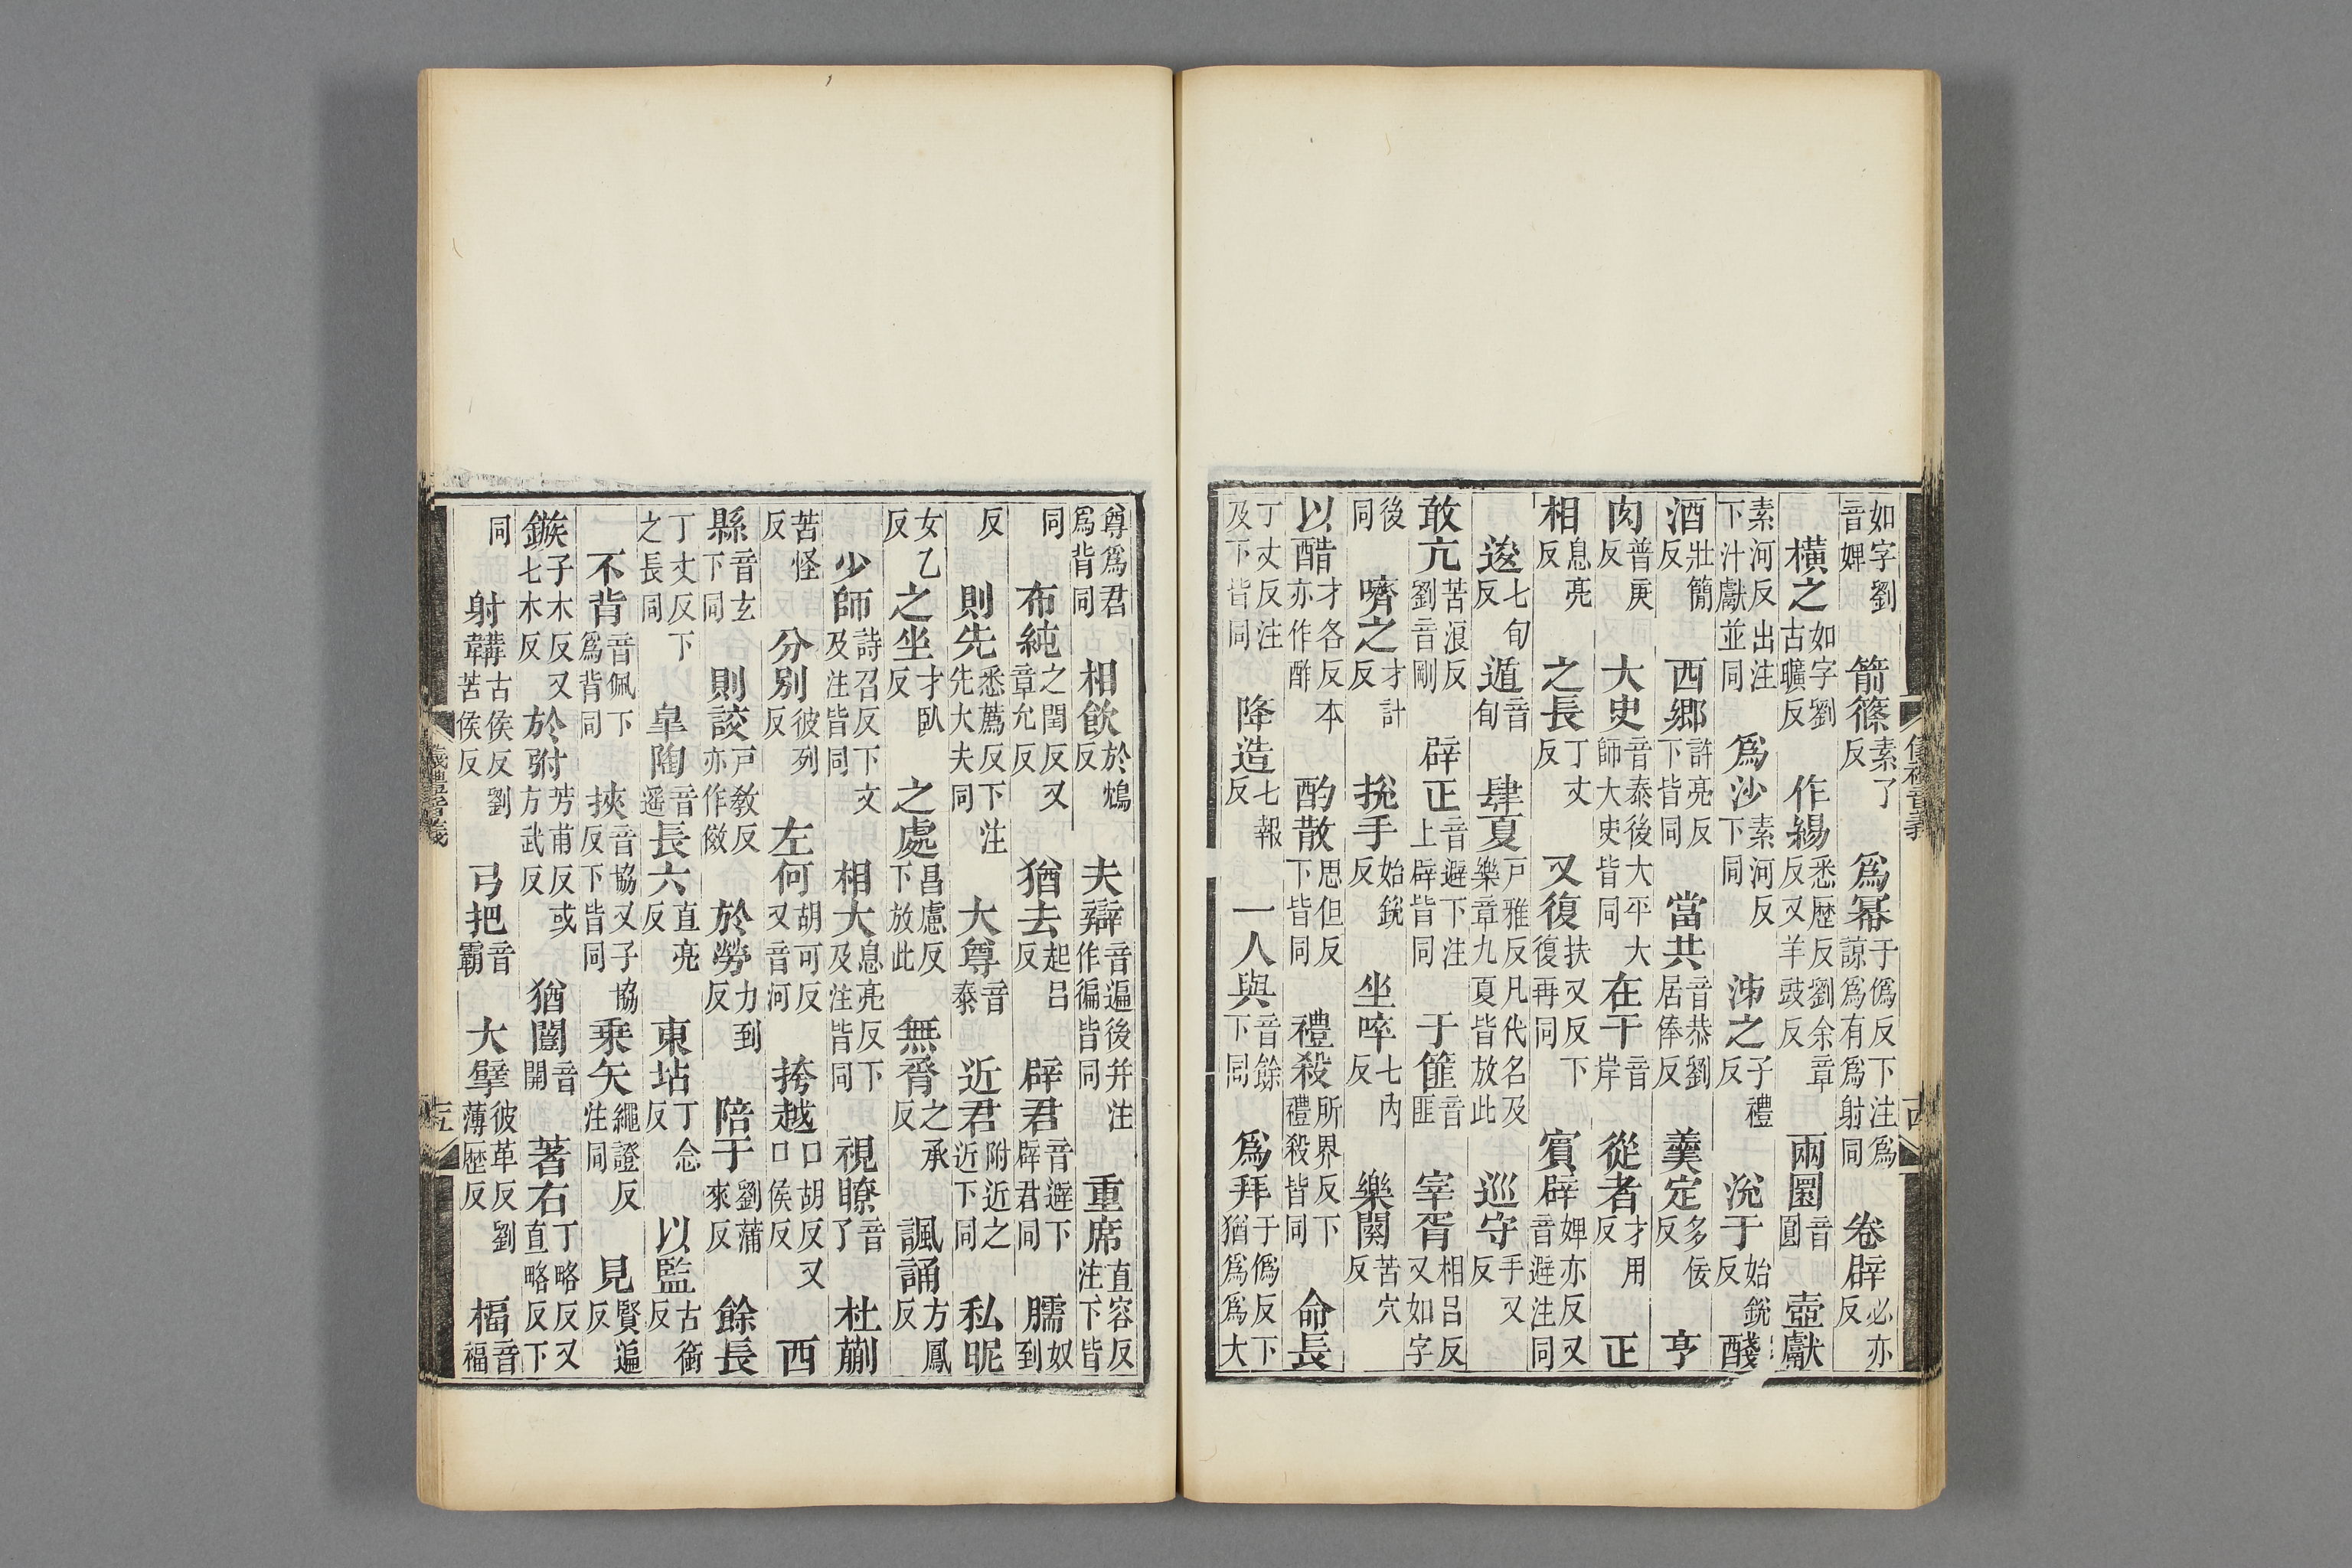 如字劉音婢 箭篠素了反 爲冪于僞反下注爲諒爲有爲射同 卷辟必亦反
橫之如字劉古曠反 作緆悉歷反劉余章反又羊豉反 兩圜音圓 壺獻
素河反出注下汁獻並同 爲沙素河反下同 泲之子禮反 涗于始銳反 醆
酒壯簡反 西鄉許亮反下皆同 當共音恭劉居俸反 羹定多佞反 亨
肉普庚反 大史音泰後大平大師大史皆同 在干音岸 從者才用反 正
相息亮反 之長丁丈反 又復扶又反下復再同 賓辟婢亦反又音避注同
逡七旬反 遁音旬 肆夏戶雅反凡代名及樂章九夏皆放此 巡守手又反
敢亢苦浪反劉音剛 辟正音避下注上辟皆同 于篚音匪 宰胥相呂反又如字
後同 嚌之才計反 挩手始銳反 坐啐七內反 樂闋苦穴反
以酢才各反本亦作酢 酌散思但反下皆同 禮殺所界反下禮殺皆同 命長
丁丈反注及下皆同 降造七報反 一人與音餘下同 爲拜于僞反下猶爲爲大
儀禮音義
尊爲君爲背同 相飮於鴆反 夫辯音遍後并注作徧皆同 重席直容反注下皆
同 布純之閏反又章允反 猶去起呂反 辟君音避下辟君同 臑奴到
反 則先悉薦反下注先大夫同 大尊音泰 近君附近之近下同 私昵
女乙反 之坐才臥反 之處昌慮反下放此 無脀之承反 諷誦方鳳反
少師詩召反下文及注皆同 相大息亮反下及注皆同 視瞭音了 杜蒯
苦怪反 分別彼列反 左何胡可反又音河 挎越口胡反又口侯反 西
縣音玄下同 則詨戶敎反亦作傚 於勞力到反 陪于劉蒲來反 餘長
丁丈反下之長同 皐陶音遥 長六直亮反 東坫丁念反 以監古銜反
不背音佩下爲背同 挾音協又子協反下皆同 乗矢繩證反注同 見賢遍反
鏃子木反又七木反 於弣芳甫反或方武反 猶闓音開 著右丁略反又直略反下
同 射韝古侯反劉苦侯反 弓把音霸 大擘彼革反劉薄歷反 楅音福